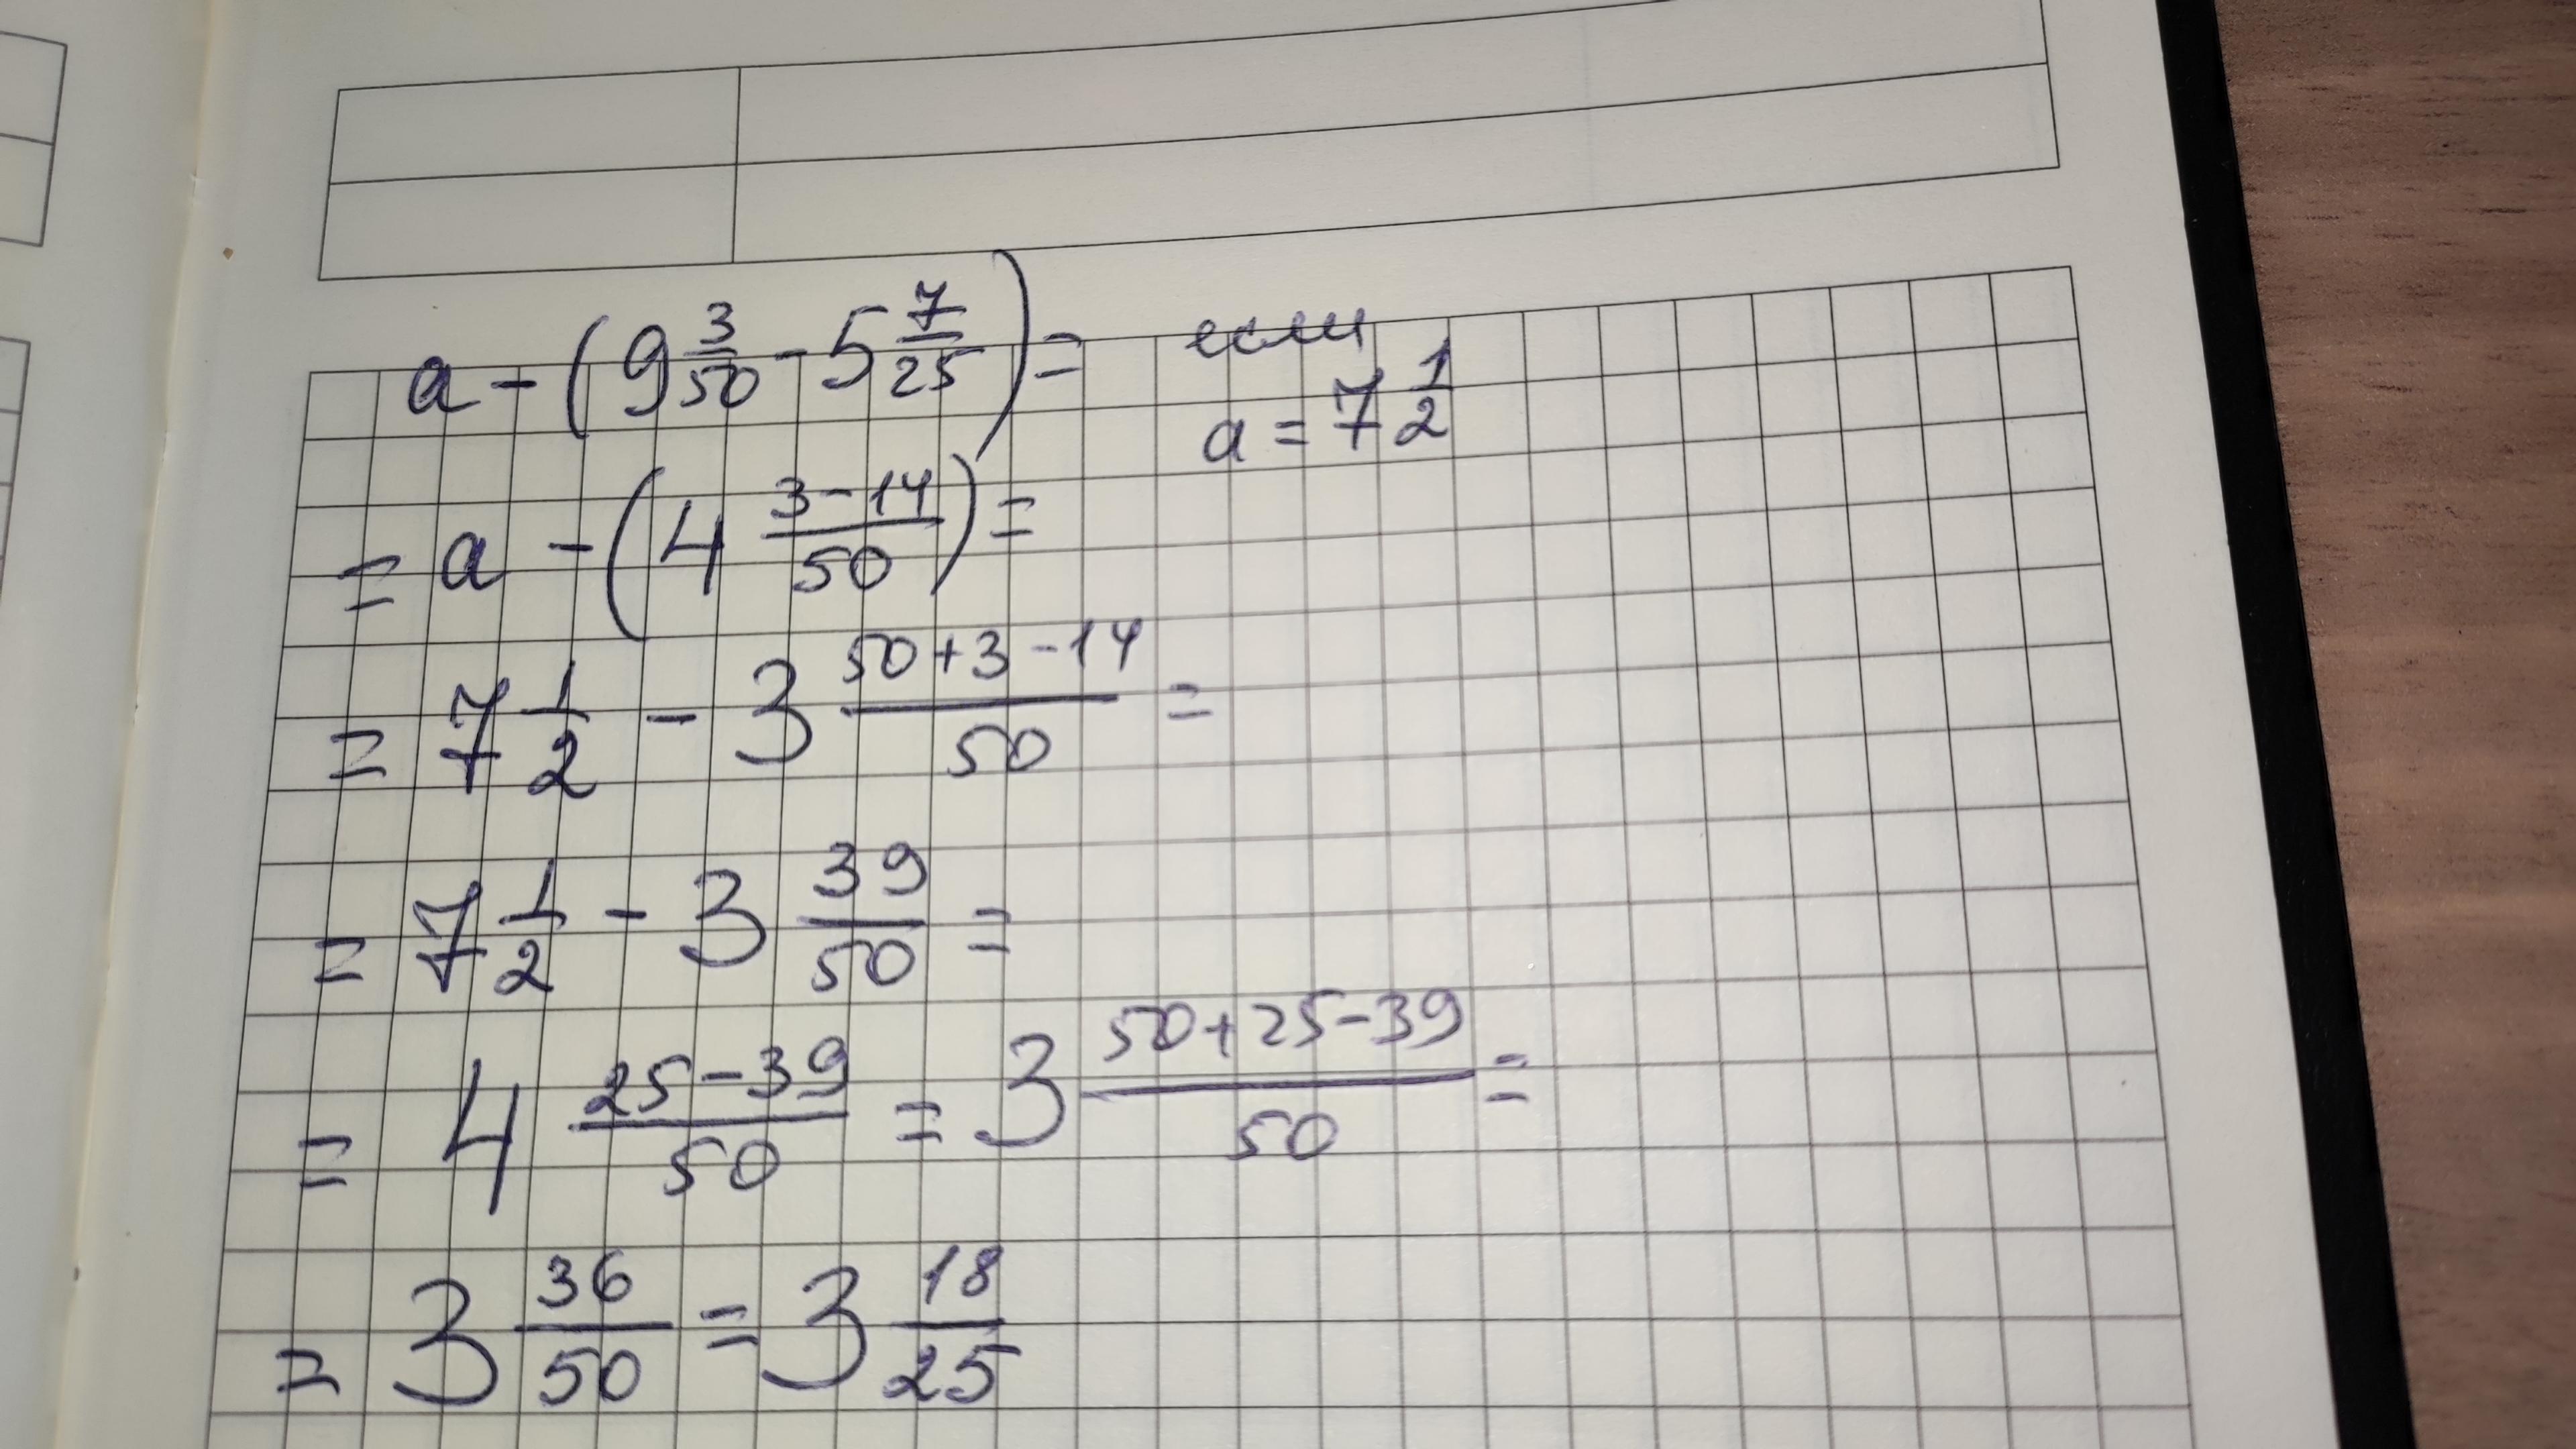 a - (9 3/50 - 5 7/25) = если
a = 7 1/2
= a - (4 (3-14)/50) =
= 7 1/2 - 3 (50+3-14)/50 =
= 7 1/2 - 3 39/50 =
= 4 (25-39)/50 = 3 (50+25-39)/50 =
= 3 36/50 = 3 18/25